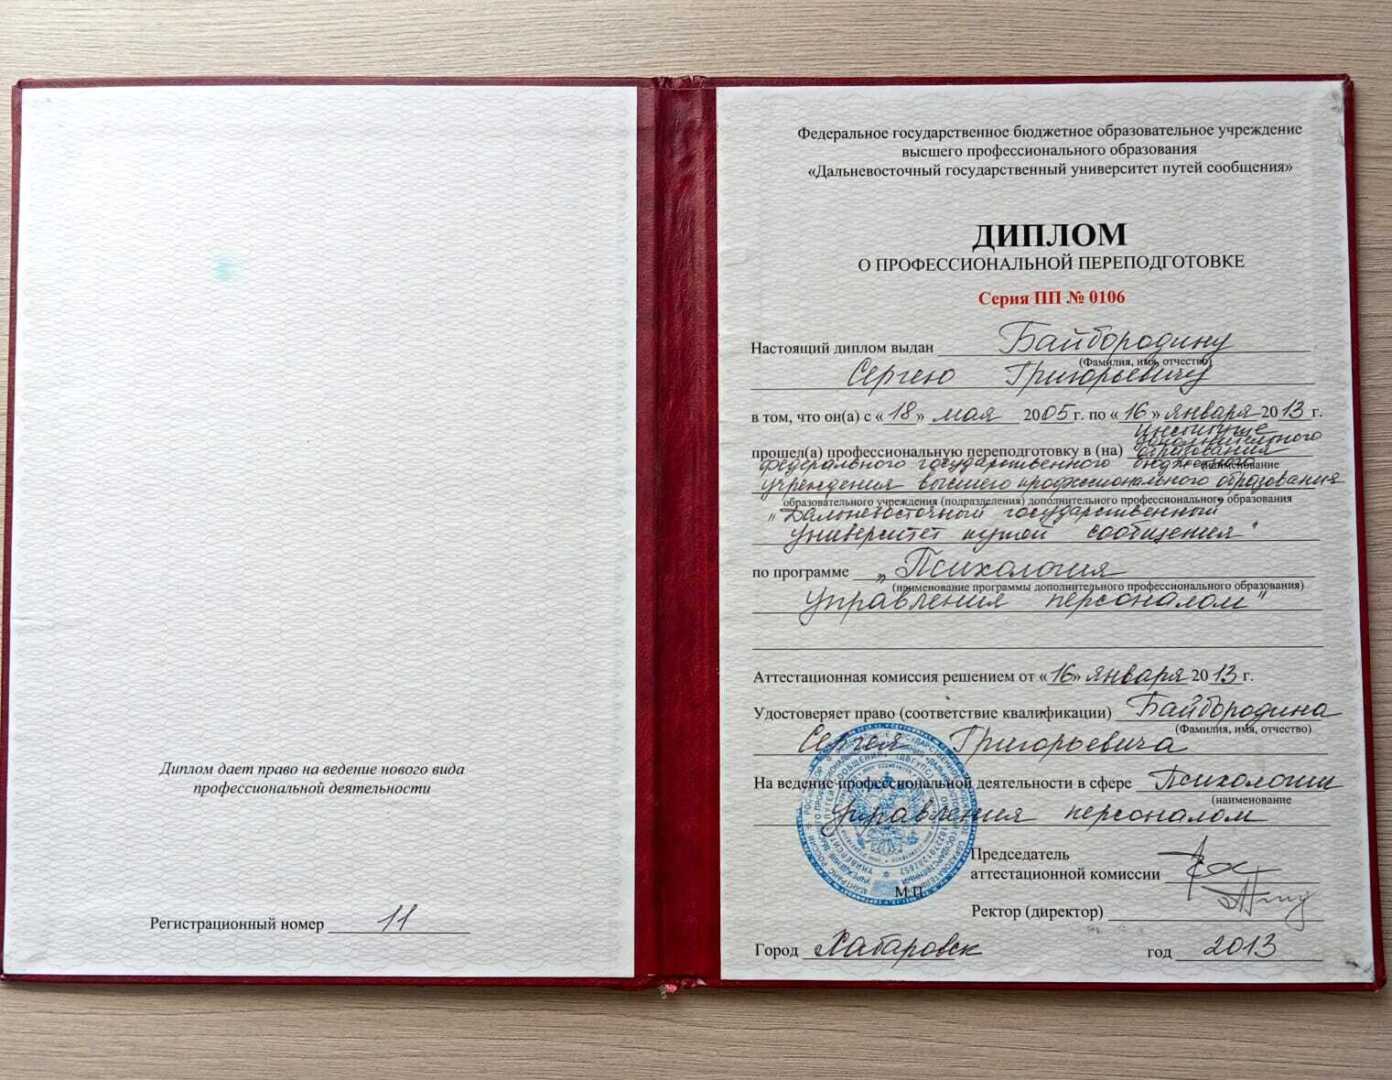 Диплом дает право на ведение нового вида
профессиональной деятельности
Регистрационный номер 11
Федеральное государственное бюджетное образовательное учреждение
высшего профессионального образования
«Дальневосточный государственный университет путей сообщения»
ДИПЛОМ
О ПРОФЕССИОНАЛЬНОЙ ПЕРЕПОДГОТОВКЕ
Серия ПП № 0106
Настоящий диплом выдан Байбородину
(Фамилия, имя, отчество)
Сергею Григорьевичу
в том, что он(а) с «18» мая 2005 г. по «16» января 2013 г.
прошел(а) профессиональную переподготовку в (на) Институте
дополнительного
образования
(наименование
федерального государственного бюджетного
учреждения высшего профессионального образования
образовательного учреждения (подразделения) дополнительного профессионального образования
"Дальневосточный государственный
университет путей сообщения"
по программе „Психология
(наименование программы дополнительного профессионального образования)
управления персоналом"
Аттестационная комиссия решением от «16» января 2013 г.
Удостоверяет право (соответствие квалификации) Байбородина
(Фамилия, имя, отчество)
Сергея Григорьевича
На ведение профессиональной деятельности в сфере Психологии
(наименование
управления персоналом
Председатель
аттестационной комиссии
М.П.
Ректор (директор)
Город Хабаровск год 2013